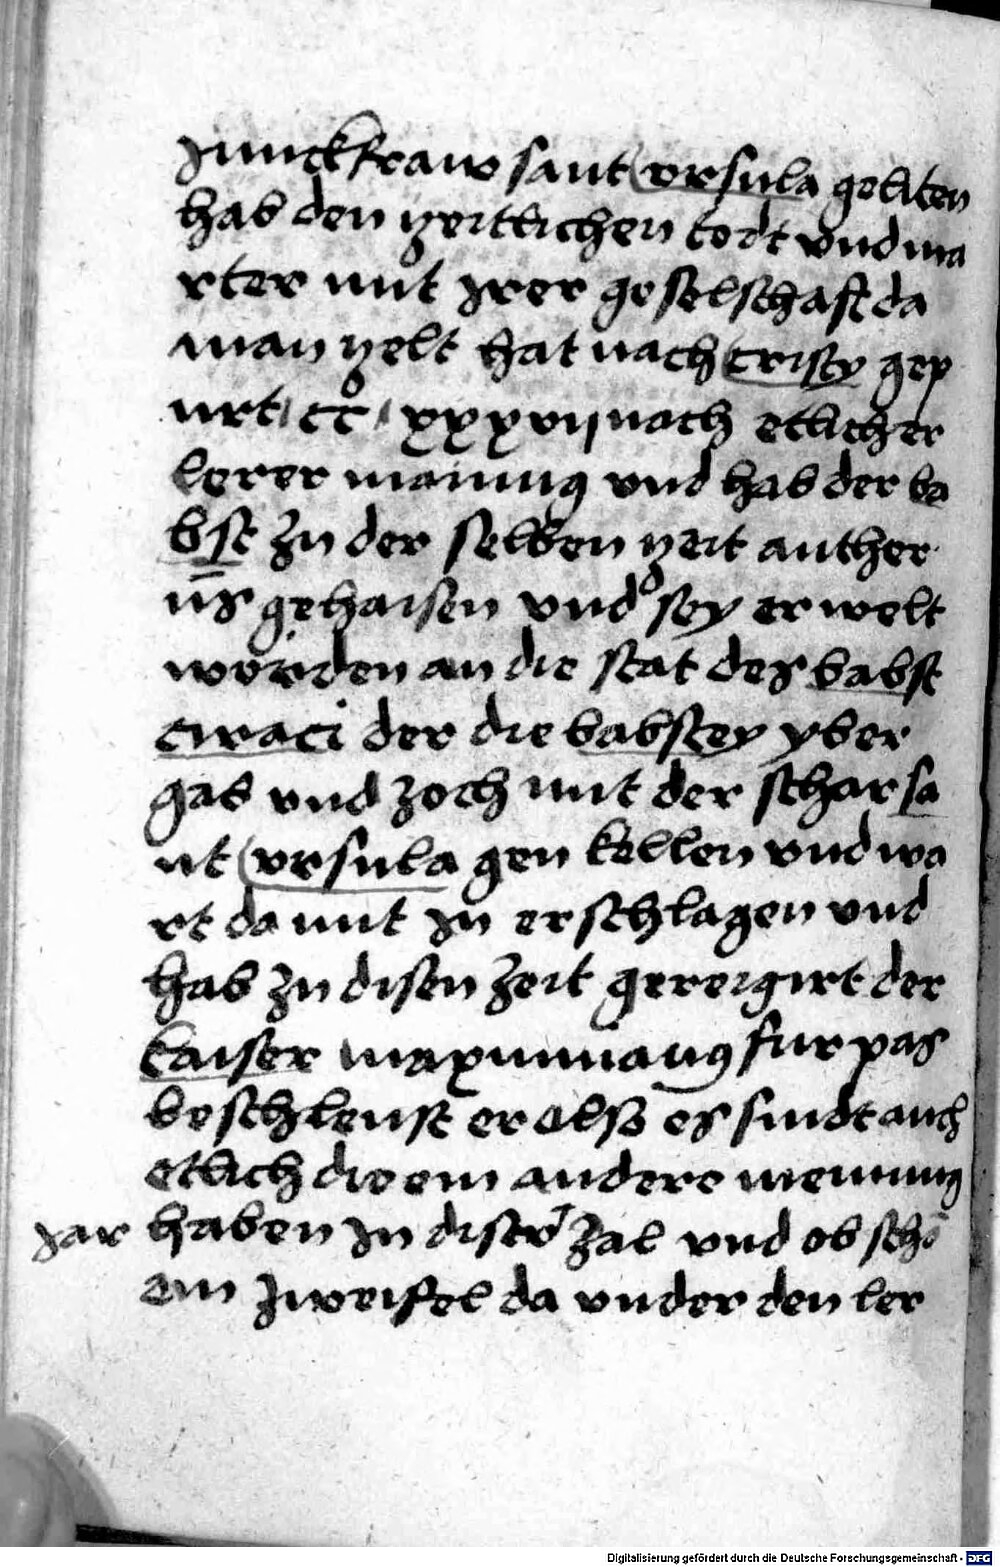 Junckfraw sant vrsula geliten
hab den zeitlichen todt vnd ma
rter mit Jrer geselschaft da
man zelt hat nach cristy gep
urt ccͦ xxxvij nach etlicher
lerer mainung vnd hab der ba
bst zu der selben zeit anther
us gehaisen vnd sey er welt
worden an die stat des babst
ciraci der die babstey yber
gab vnd zoch mit der schar sa
nt vrsula gen kellen vnd wa
rt da mit Jn erschlagen vnd
hab zu disen zeit gereigirt der
kaiser maximianus fur pas
beschleust er also es sindt auch
etlich die ein andere meinung
Jar haben Jn diser zal vnd ob schō
ein zweifel da vnder den ler
Digitalisierung gefördert durch die Deutsche Forschungsgemeinschaft - DFG